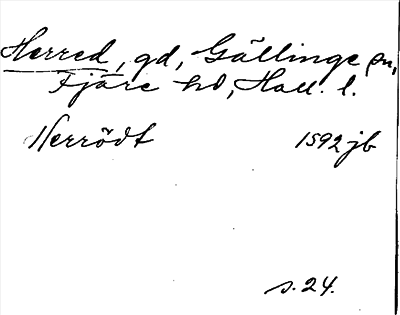 Herred, gd, Gällinge sn,
Fjäre hd, Hall. l.
Herrödt 1592 jb
s. 24.